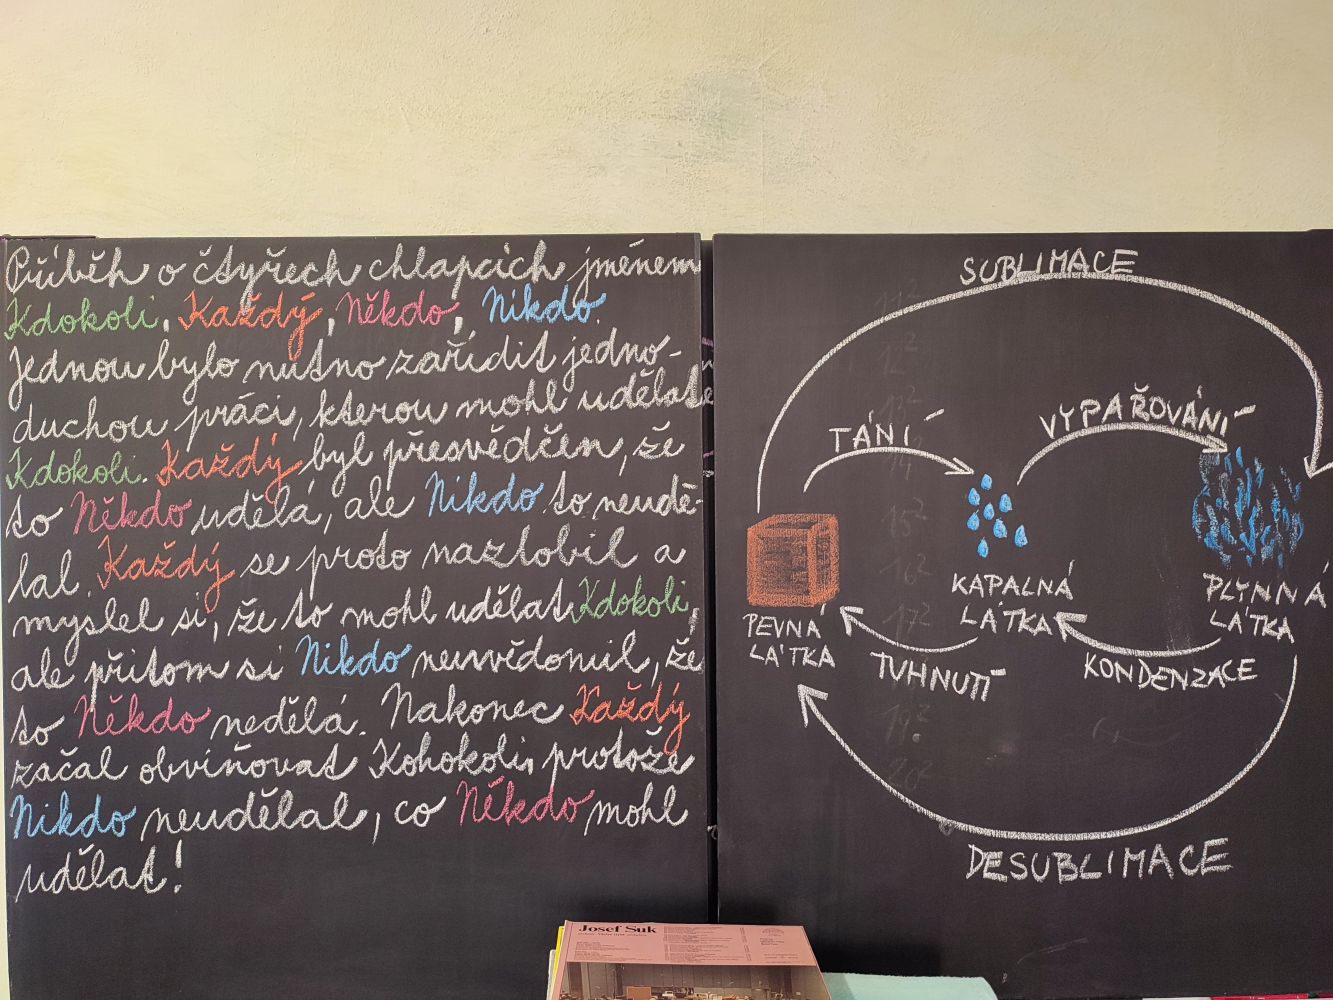 Příběh o čtyřech chlapcích jménem
Kdokoli, Každý, Někdo, Nikdo.
Jednou bylo nutno zařídit jedno-
duchou práci, kterou mohl udělat
Kdokoli. Každý byl přesvědčen, že
to Někdo udělá, ale Nikdo to neudě-
lal. Každý se proto nazlobil a
myslel si, že to mohl udělat Kdokoli,
ale přitom si Nikdo neuvědomil, že
to Někdo nedělá. Nakonec Každý
začal obviňovat Kohokoli, protože
Nikdo neudělal, co Někdo mohl
udělat!
SUBLIMACE
TÁNÍ
VYPAŘOVÁNÍ
PEVNÁ
LÁTKA
KAPALNÁ
LÁTKA
PLYNNÁ
LÁTKA
TUHNUTÍ
KONDENZACE
DESUBLIMACE
Josef Suk